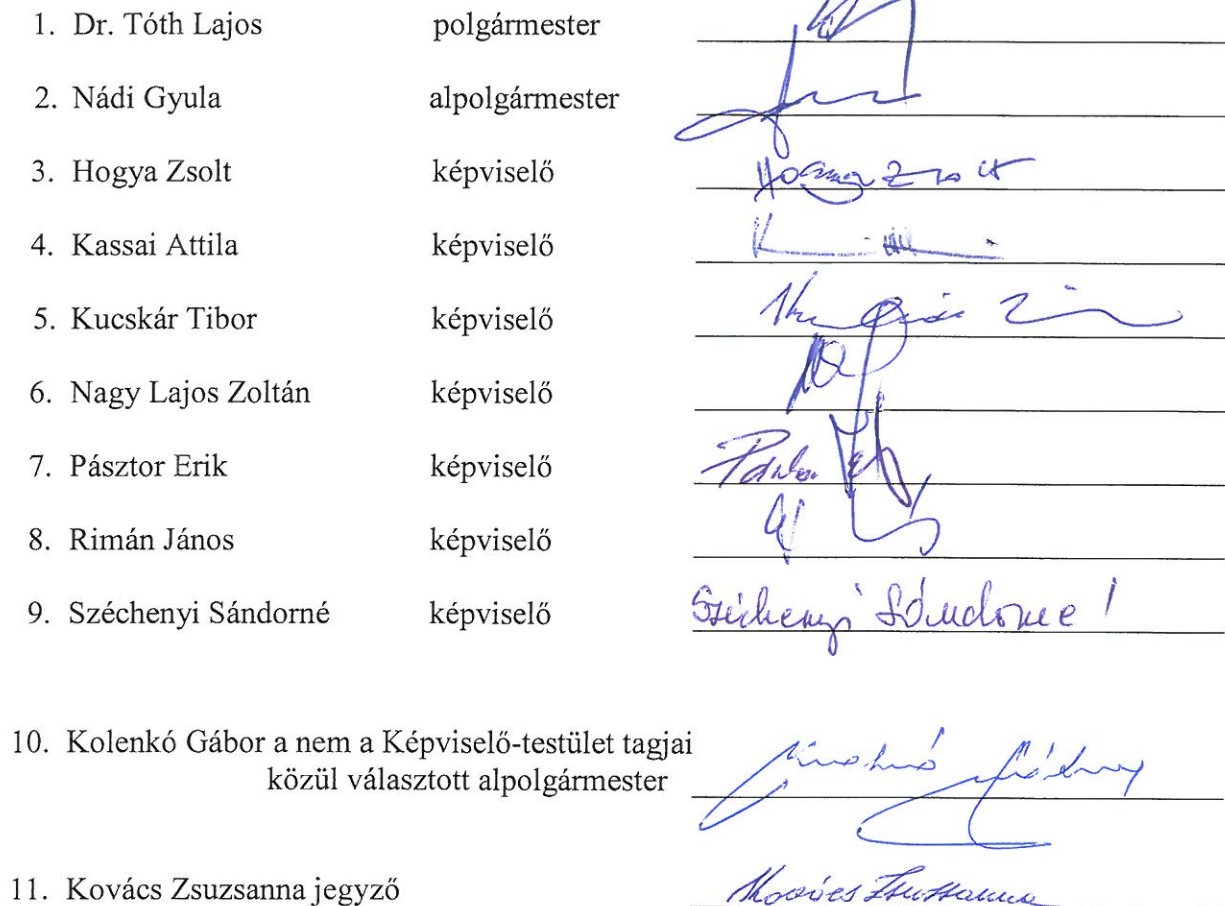 1. Dr. Tóth Lajos polgármester
2. Nádi Gyula alpolgármester
3. Hogya Zsolt képviselő Hogya Zsolt
4. Kassai Attila képviselő
5. Kucskár Tibor képviselő
6. Nagy Lajos Zoltán képviselő
7. Pásztor Erik képviselő
8. Rimán János képviselő
9. Széchenyi Sándorné képviselő Széchenyi Sándorné
10. Kolenkó Gábor a nem a Képviselő-testület tagjai
közül választott alpolgármester
11. Kovács Zsuzsanna jegyző Kovács Zsuzsanna